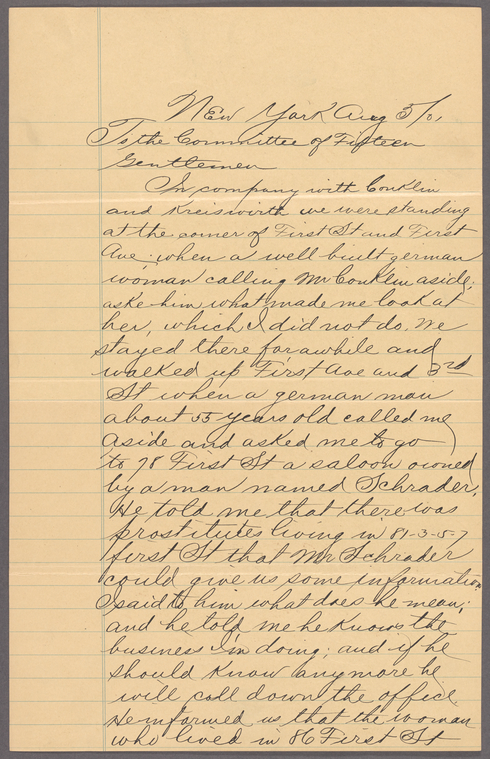 New York Aug 5/01
To the Committee of Fifteen
Gentlemen
In company with Conklin
and Kreiswirth we were standing
at the corner of First St and First
Ave. when a well built german
woman calling Mr Conklin aside;
aske him what made me look at
her, which I did not do. We
stayed there for awhile and
walked up First Ave and 3rd
St when a german man
about 55 years old called me
aside and asked me to go
to 78 First St a saloon owned
by a man named Schrader.
He told me that there was
prostitutes living in 81-3-5-7
first St that Mr Schrader
could give us some information
I said to him what does he mean;
and he told me he knows the
business I'm doing; and if he
should know anymore he
will call down the office.
He informed us that the woman
who lived in 86 First St